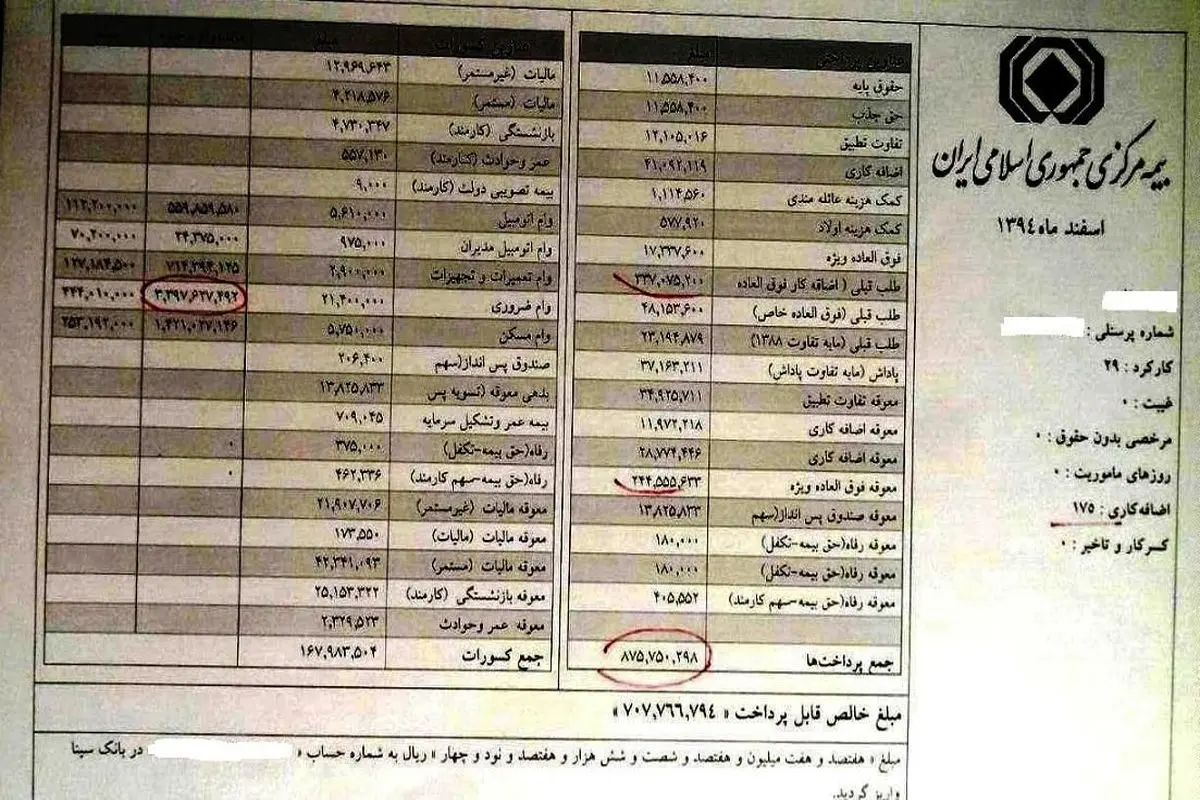 بیمه مرکزی جمهوری اسلامی ایران
اسفند ماه ۱۳۹۴
شماره پرسنلی :
کارکرد : ۲۹
غیبت : ۰
مرخصی بدون حقوق : ۰
روزهای ماموریت : ۰
اضافه‌کاری : ۱۷۵
کسر کار و تاخیر : ۰
مبلغ
حقوق پایه ۱۱,۵۵۸,۴۰۰
حق جذب ۱۱,۵۵۸,۴۰۰
تفاوت تطبیق ۱۲,۱۰۵,۰۱۶
اضافه کاری ۴۱,۰۹۲,۱۱۹
کمک هزینه عائله مندی ۱,۱۱۴,۵۶۰
کمک هزینه اولاد ۵۷۷,۹۲۰
فوق العاده ویژه ۱۷,۳۳۷,۶۰۰
طلب قبلی ( اضافه کار فوق العاده ۳۳۷,۰۷۵,۲۰۰
طلب قبلی (فوق العاده خاص) ۴۸,۱۵۳,۶۰۰
طلب قبلی (مابه تفاوت ۱۳۸۸) ۲۳,۱۹۴,۸۷۹
پاداش (مابه تفاوت پاداش) ۳۷,۱۶۳,۲۱۱
معوقه تفاوت تطبیق ۳۴,۹۲۵,۷۱۱
معوقه اضافه کاری ۱۱,۹۷۲,۲۱۸
معوقه اضافه کاری ۲۸,۷۷۴,۴۴۶
معوقه فوق العاده ویژه ۲۴۴,۵۵۵,۶۳۳
معوقه صندوق پس انداز(سهم ۱۳,۸۲۵,۸۳۳
معوقه رفاه(حق بیمه-تکفل) ۱۸۰,۰۰۰
معوقه رفاه(حق بیمه-تکفل) ۱۸۰,۰۰۰
معوقه رفاه(حق بیمه-سهم کارمند) ۴۰۵,۵۵۲
جمع پرداخت‌ها ۸۷۵,۷۵۰,۲۹۸
مبلغ
مالیات (غیرمستمر) ۱۲,۹۶۹,۶۴۳
مالیات (مستمر) ۴,۲۱۸,۵۷۶
بازنشستگی (کارمند) ۴,۷۳۰,۳۴۷
عمر وحوادث (کارمند) ۵۵۷,۱۳۰
بیمه تصویبی دولت (کارمند) ۹,۰۰۰
وام اتومبیل ۵,۶۱۰,۰۰۰ ۵۵۹,۸۵۹,۵۸۰ ۱۱۲,۲۰۰,۰۰۰
وام اتومبیل مدیران ۹۷۵,۰۰۰ ۲۴,۳۷۵,۰۰۰ ۷۰,۲۰۰,۰۰۰
وام تعمیرات و تجهیزات ۲,۹۰۰,۰۰۰ ۷۱۴,۳۹۴,۱۲۵ ۱۲۷,۱۸۴,۵۰۰
وام ضروری ۲۱,۴۰۰,۰۰۰ ۳,۳۹۷,۶۲۷,۴۹۲ ۴۴۴,۰۱۰,۰۰۰
وام مسکن ۵,۷۵۰,۰۰۰ ۱,۴۲۱,۰۲۷,۱۴۶ ۲۵۳,۱۹۲,۰۰۰
صندوق پس انداز(سهم ۲۰۶,۴۰۰
بدهی معوقه (تسویه پس ۱۳,۸۲۵,۸۳۳
بیمه عمر وتشکیل سرمایه ۷۰۹,۰۴۵
رفاه(حق بیمه-تکفل) ۳۷۵,۰۰۰ ۰
رفاه(حق بیمه-سهم کارمند) ۴۶۲,۳۳۶ ۰
معوقه مالیات (غیرمستمر) ۲۱,۹۰۷,۷۰۶
معوقه مالیات (مالیات) ۱۷۳,۵۵۰
معوقه مالیات (مستمر) ۴۲,۳۴۱,۰۹۳
معوقه بازنشستگی (کارمند) ۲۵,۱۵۳,۳۲۲
معوقه عمر وحوادث ۲,۳۲۹,۵۲۳
جمع کسورات ۱۶۷,۹۸۳,۵۰۴
مبلغ خالص قابل پرداخت « ۷۰۷,۷۶۶,۷۹۴ »
مبلغ « هفتصد و هفت میلیون و هفتصد و شصت و شش هزار و هفتصد و نود و چهار » ریال به شماره حساب « در بانک سینا
واریز گردید.